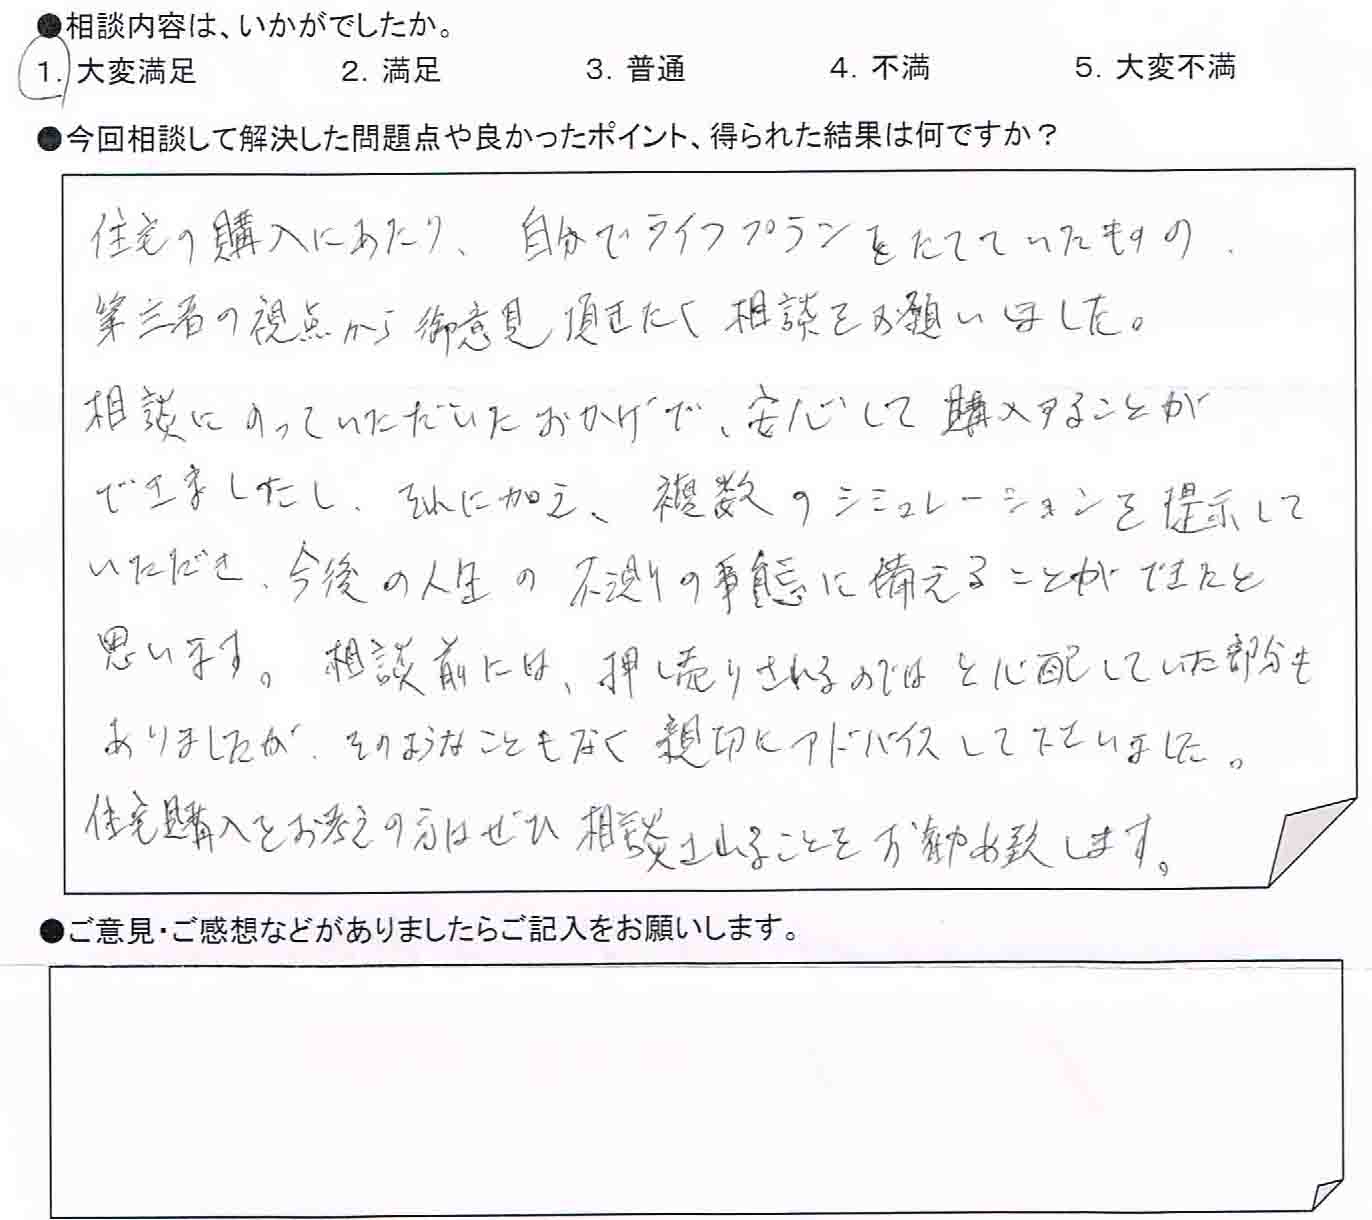 ●相談内容は、いかがでしたか。
1. 大変満足 2. 満足 3. 普通 4. 不満 5. 大変不満
●今回相談して解決した問題点や良かったポイント、得られた結果は何ですか？
住宅の購入にあたり、自分でライフプランをたてていたものの、
第三者の視点から御意見頂きたく相談をお願いしました。
相談にのっていただいたおかげで、安心して購入することが
できましたし、それに加え、複数のシミュレーションを提示して
いただき、今後の人生の不測の事態に備えることができたと
思います。相談前には、押し売りされるのではと心配していた部分も
ありましたが、そのようなこともなく親切にアドバイスして下さいました。
住宅購入をお考えの方はぜひ相談されることをお勧め致します。
●ご意見・ご感想などがありましたらご記入をお願いします。